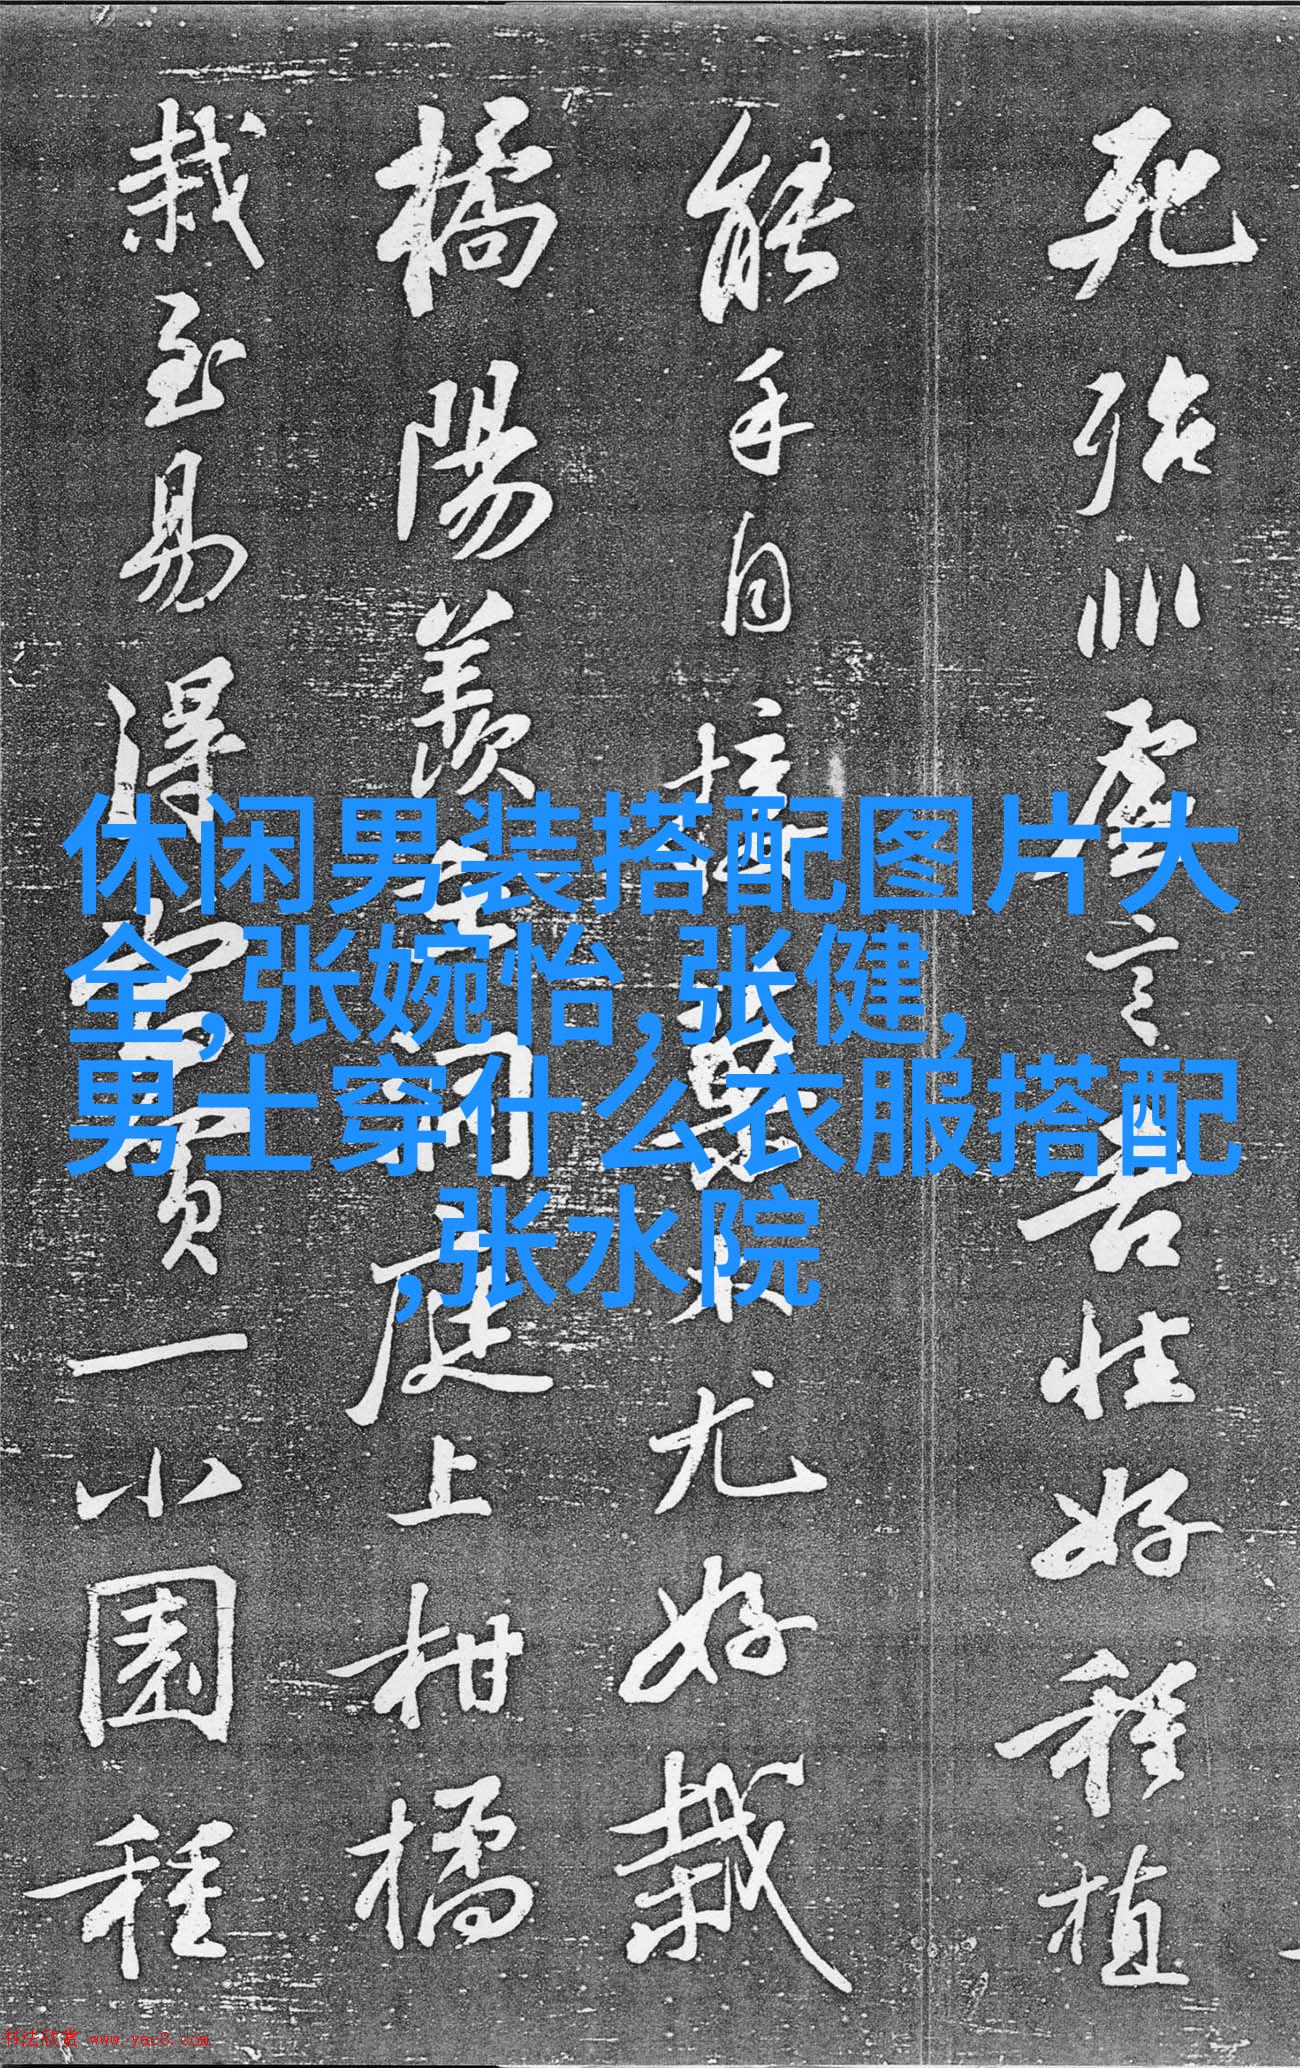 死殆非虛言吾性好種植
能手自接菓木尤好栽
橘陽羨在洞庭上柑橘
栽至易得當買一小園種
休闲男装搭配图片大
全,张婉怡,张健,
男士穿什么衣服搭配
,张水院
书法欣赏 www.yac8.com